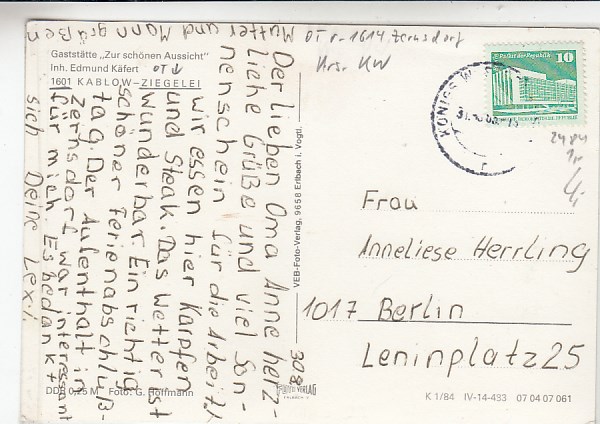 Gaststätte „Zur schönen Aussicht"
Inh. Edmund Käfert OT ↓
1601 KABLOW-ZIEGELEI
Mutter und Mann grüßen
Der lieben Oma Anne herz-
liche Grüße und viel Son-
nenschein für die Arbeit!
Wir essen hier Karpfen
und Steak. Das Wetter ist
wunderbar. Ein richtig
schöner Ferienabschluß-
tag. Der Aufenthalt in
Zernsdorf war interessant
für mich. Es bedankt
sich Deine Lexi.
OT v. 1614 Zernsdorf
Krs. KW
VEB-Foto-Verlag, 9658 Erlbach i. Vogtl.
308
FOTO VERLAG
ERLBACH
Palast der Republik
10
DDR
KÖNIGS W
31.
r
Frau
Anneliese Herrling
1017 Berlin
Leninplatz 25
DDR 0,25 M Foto: G. Hoffmann
K 1/84 IV-14-483 07 04 07 061